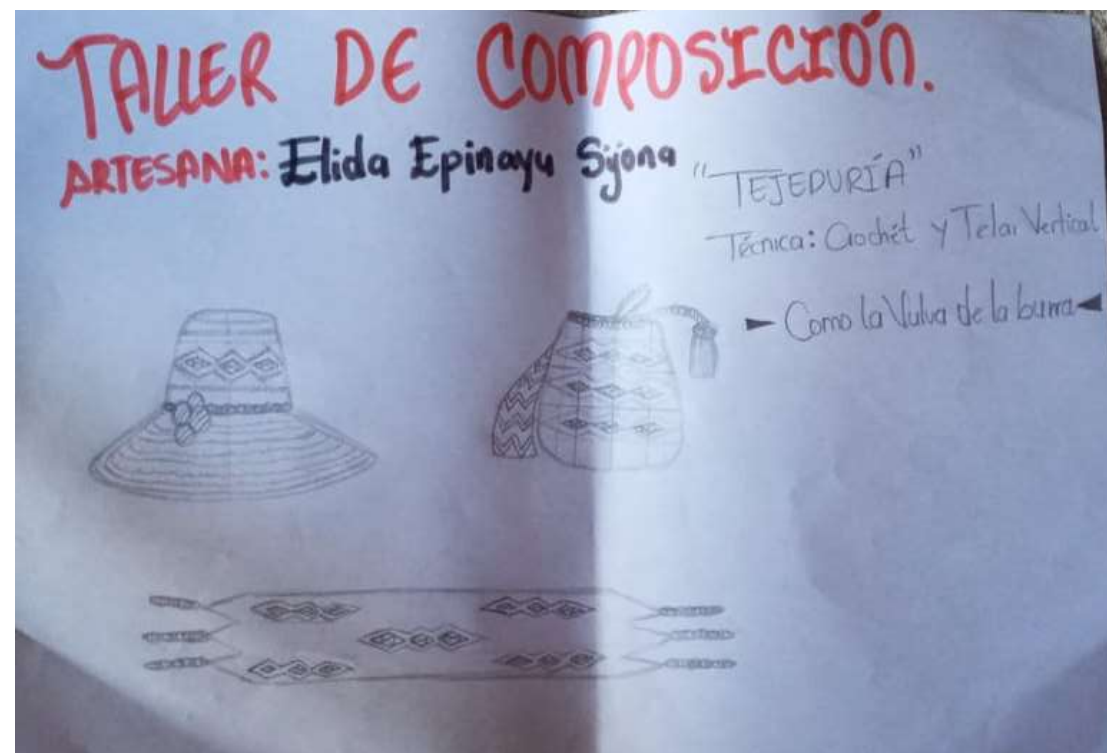 TALLER DE COMPOSICIÓN.
ARTESANA: Elida Epinayu Sijona
"TEJEDURÍA"
Técnica: Crochét y Telar Vertical
Como la Vulva de la burra